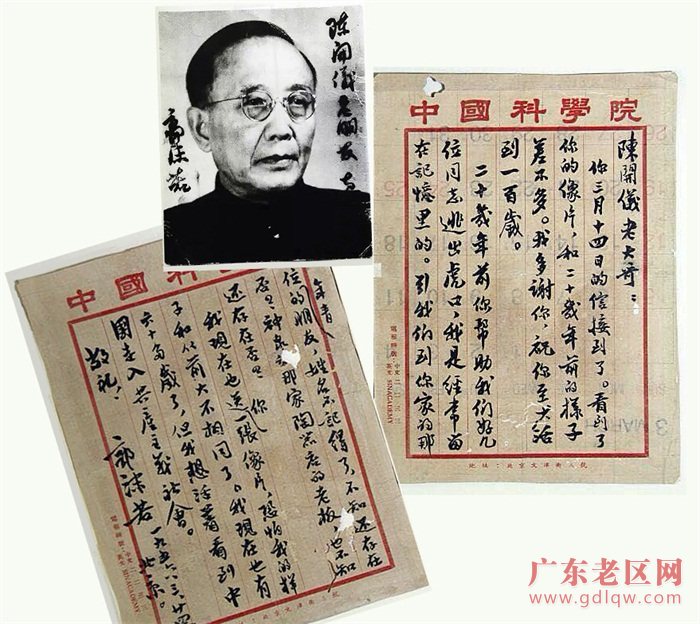 陳開儀老朋友
郭沫若
中國科學院
陳開儀老大哥：
你三月十四日的信接到了。看到了
你的像片，和二十幾年前的樣子
差不多。我多謝你，祝你至少活
到一百歲。
二十幾年前你幫助我們好幾
位同志逃出虎口，我是經常留
在記憶里的。引我們到你家的那
SINACADEMY
地址：北京文津街八號
中國科
年青
位的朋友，姓名不記得了，不知還存在
否？神泉的那家陶器店的老板，也不知
還存在否？你
我現在也送張像片，恐怕我的樣
子和以前大不相同了。我現在也有
六十多歲了，但我想活着看到中
國走入共產主義社會。
敬禮！
郭沫若
一九五六.三.廿四
北京。
广东老区网
www.gdlqw.com